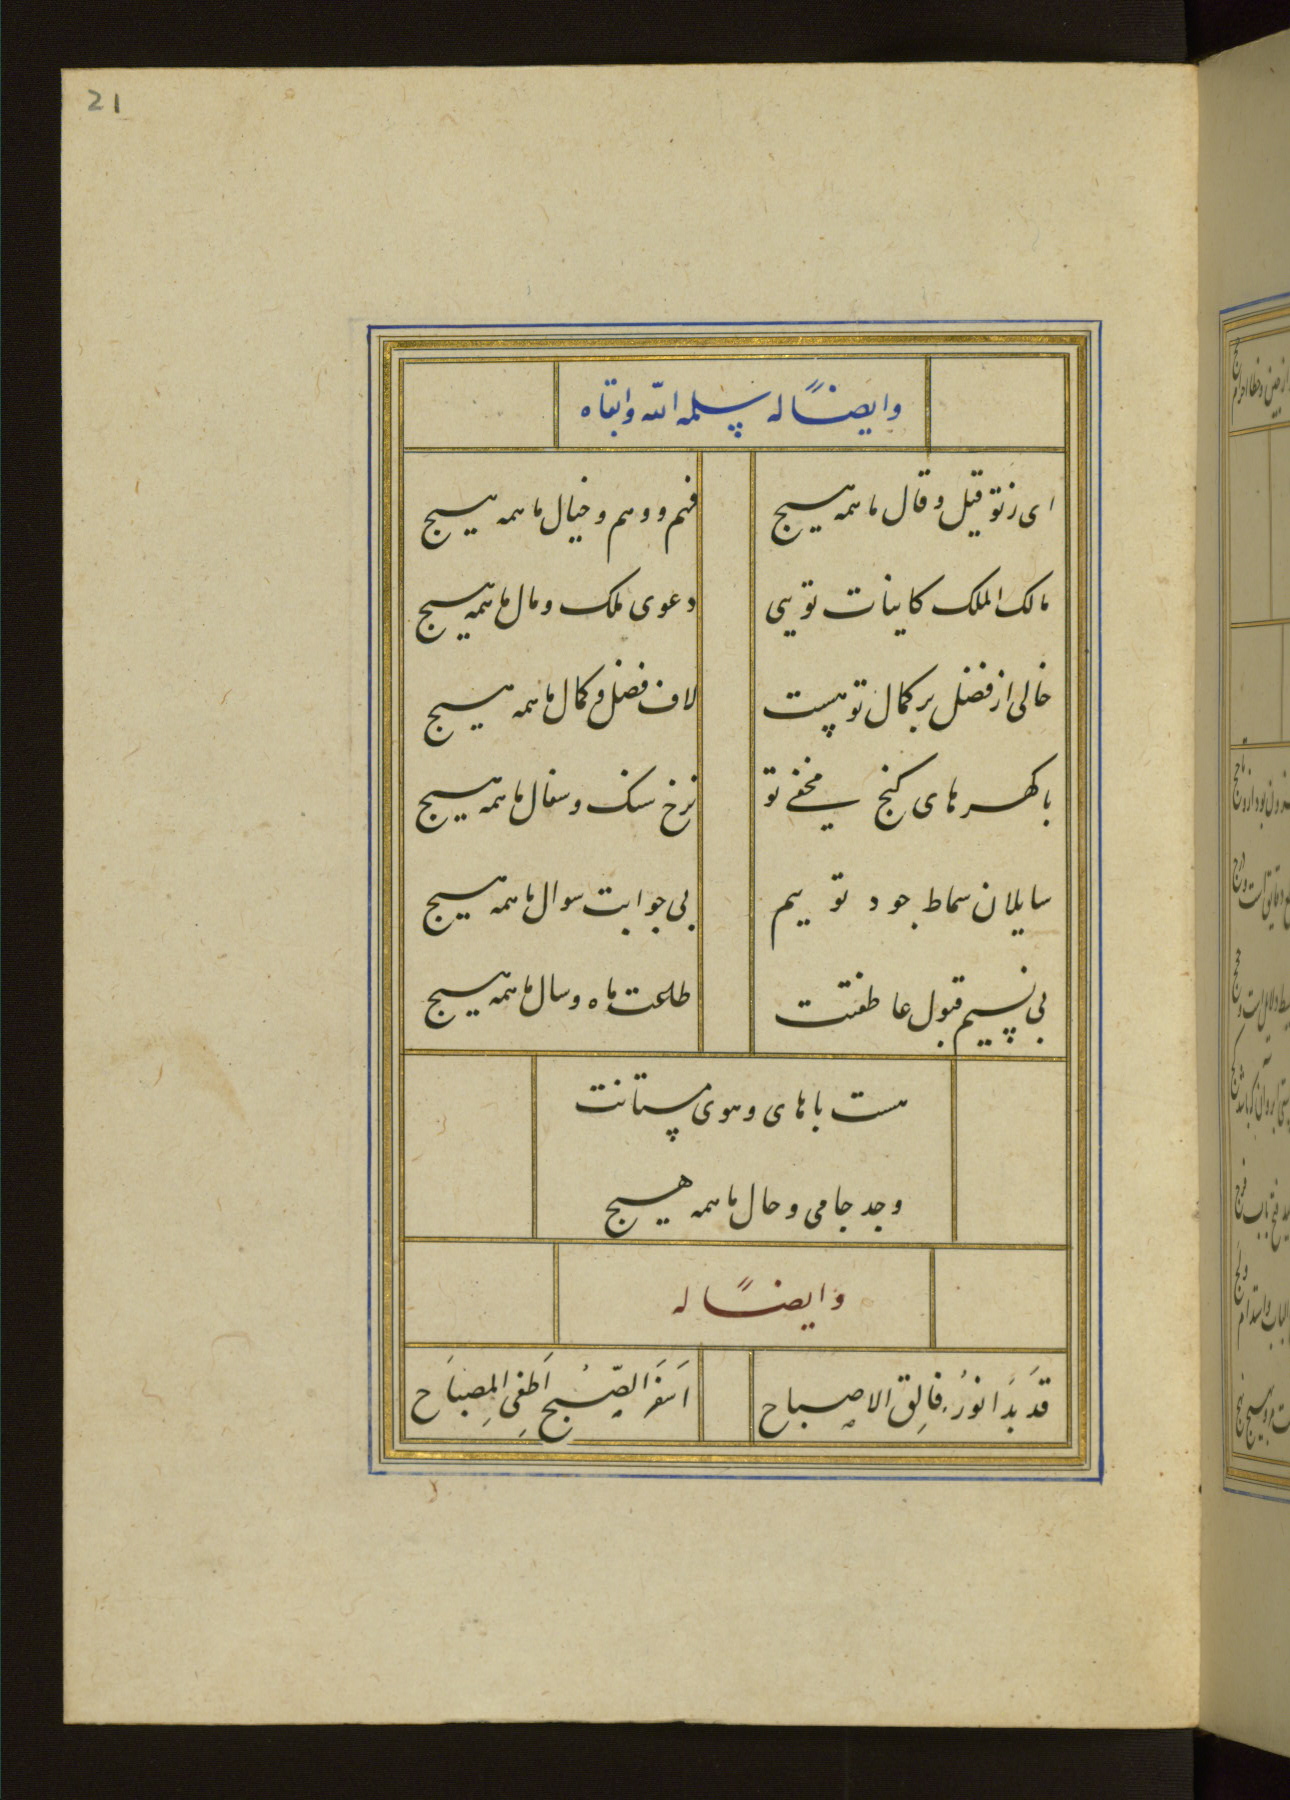 21
وایضاً له سلمه الله وابقاه
ای ز تو قیل و قال ما همه هیچ
فهم و وهم و خیال ما همه هیچ
مالک الملک کاینات تویی
دعوی ملک و مال ما همه هیچ
خالی از فضل بر کمال تو هست
لاف فضل و کمال ما همه هیچ
با کهرهای کنج مخفی تو
نرخ سنک و سفال ما همه هیچ
سایلان سماط جود توییم
بی جوابت سوال ما همه هیچ
بی نسیم قبول عاطفتت
طلعت ماه و سال ما همه هیچ
هست با های و هوی مستانت
وجد جامی و حال ما همه هیچ
وایضاً له
قَد بَدَا نورُ فالِق الاصباح
اَسفَرَ الصّبُح اَطفِی المِصبَاح